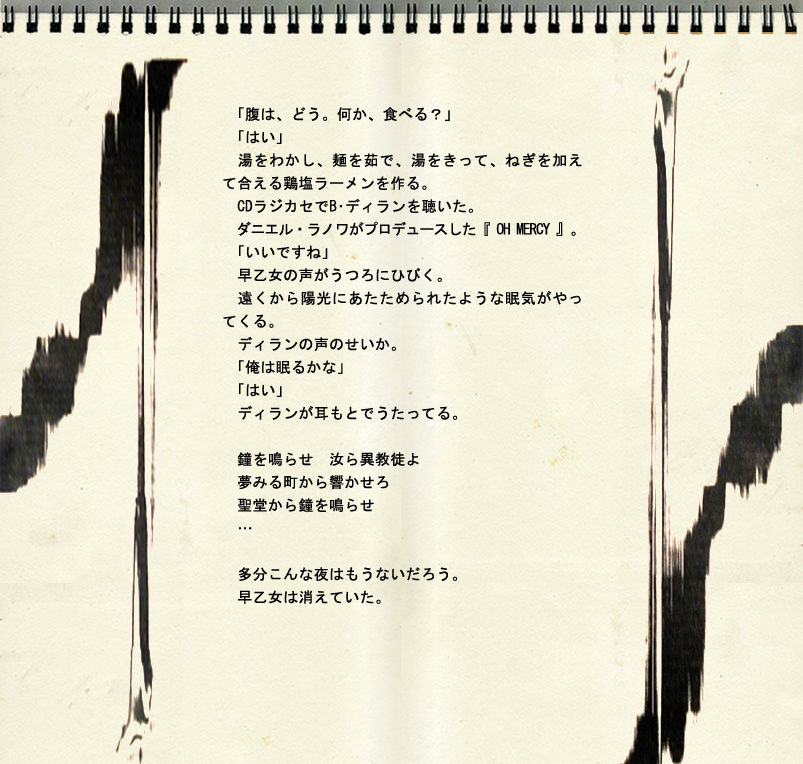 「腹は、どう。何か、食べる？」
「はい」
　湯をわかし、麺を茹で、湯をきって、ねぎを加え
て合える鶏塩ラーメンを作る。
　CDラジカセでB･ディランを聴いた。
　ダニエル・ラノワがプロデュースした『 OH MERCY 』。
「いいですね」
　早乙女の声がうつろにひびく。
　遠くから陽光にあたためられたような眠気がやっ
てくる。
　ディランの声のせいか。
「俺は眠るかな」
「はい」
　ディランが耳もとでうたってる。
　鐘を鳴らせ　汝ら異教徒よ
　夢みる町から響かせろ
　聖堂から鐘を鳴らせ
　…
　多分こんな夜はもうないだろう。
　早乙女は消えていた。